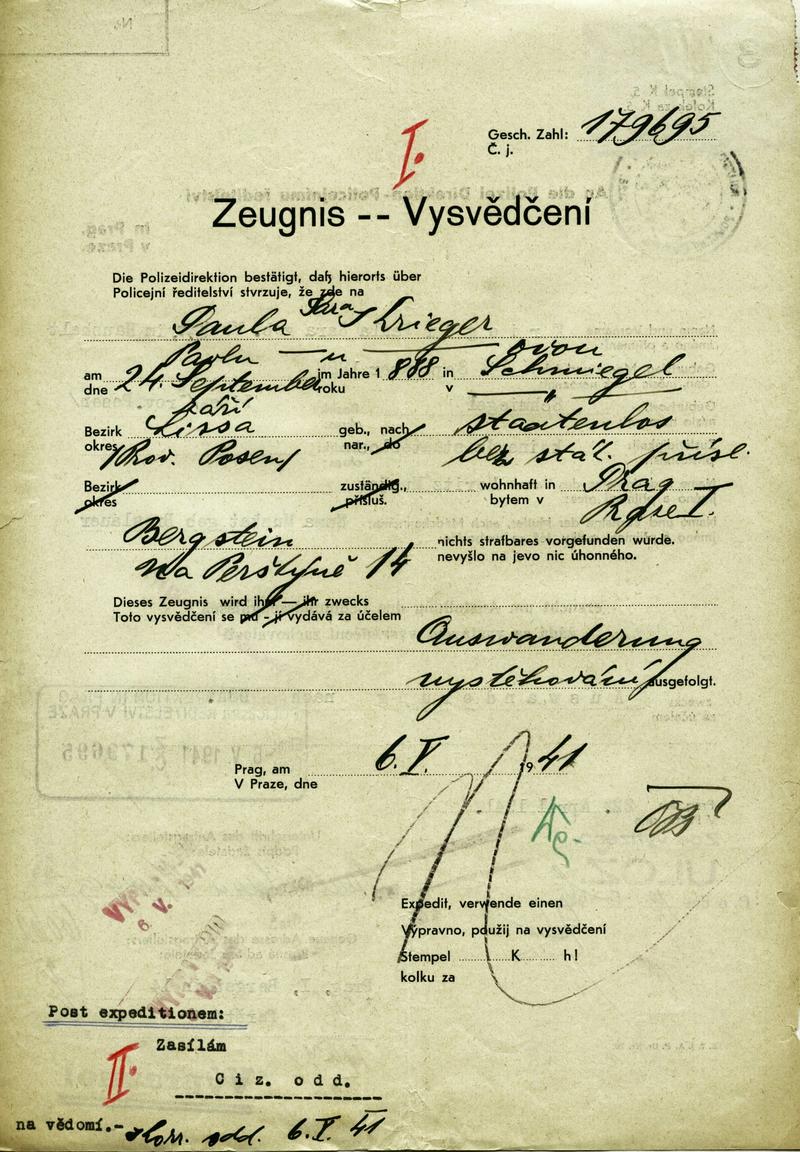 Gesch. Zahl: 179695
Č. j.
I.
Zeugnis -- Vysvědčení
Die Polizeidirektion bestätigt, daß hierorts über
Policejní ředitelství stvrzuje, že zde na
Sara
Paula Krieger
Pavlu — u — ovou
am 24. September im Jahre 1 888 in Schmiegel
dne září roku v — „ —
Bezirk Lissa geb., nach staatenlos
okres /Prov. Posen/ nar., do bez stát. přísl.
Bezirk zuständig., wohnhaft in Prag
okres přísluš. bytem v Praze I.
Bergstein nichts strafbares vorgefunden wurde.
Na Perštýně 14 nevyšlo na jevo nic úhonného.
Dieses Zeugnis wird ihm — ihr zwecks
Toto vysvědčení se mu - jí vydává za účelem
Auswanderung
vystěhování ausgefolgt.
Prag, am 6. V. 19 41
V Praze, dne
Expedit, verwende einen
Výpravno, použij na vysvědčení
Stempel K h!
kolku za
VYPRAVENO
6. V. 1941
Post expeditionem:
Zasílám
II.
Ciz. odd.
na vědomí.-
odd. 6. V. 41